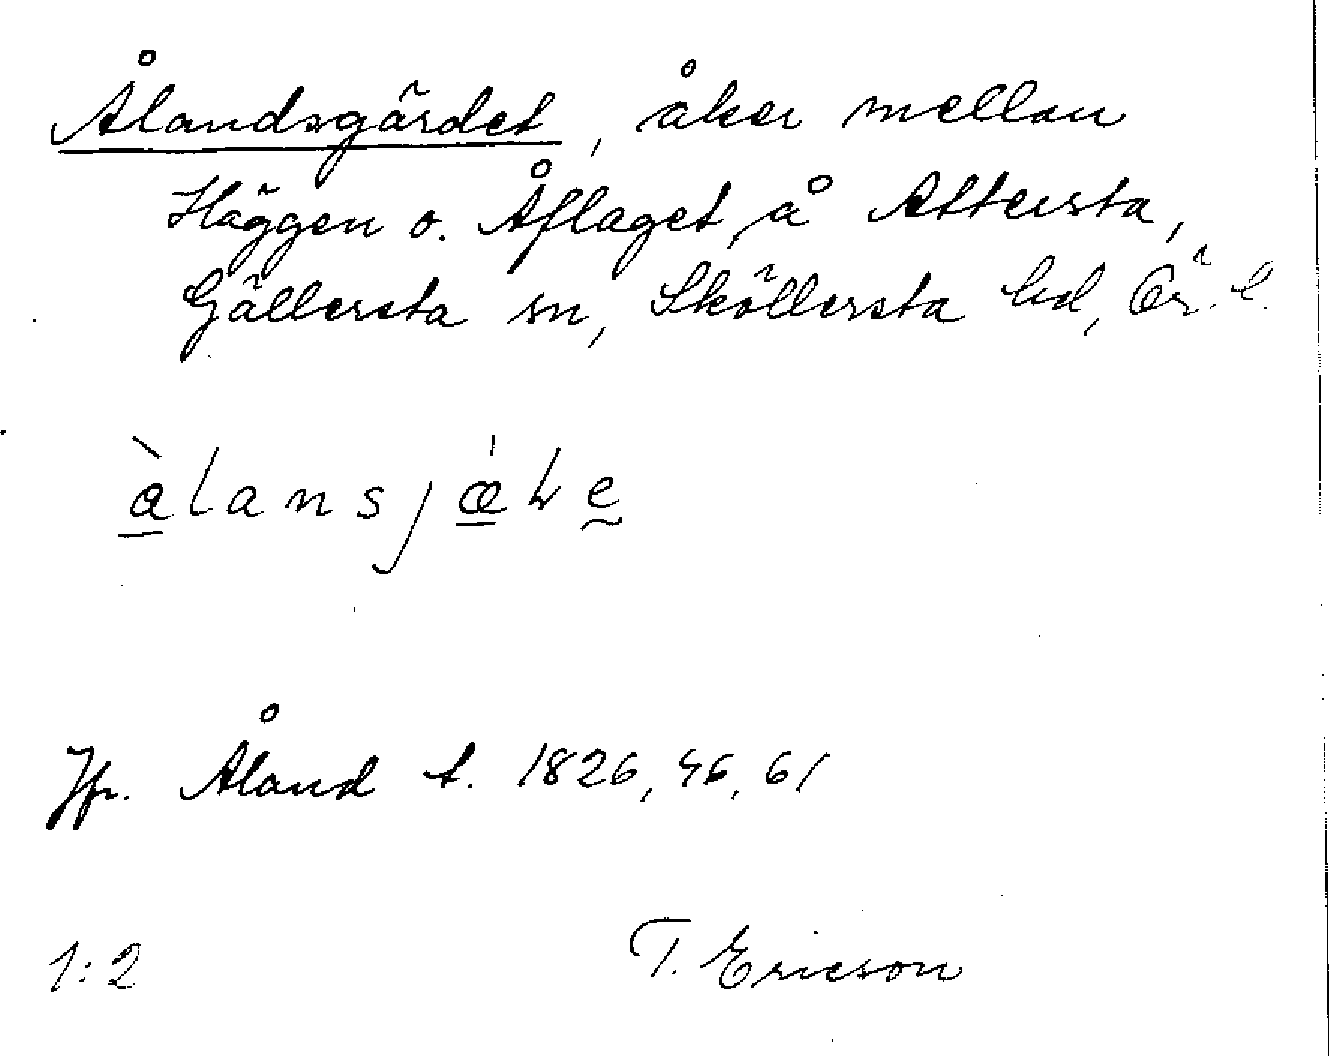 Ålandsgärdet, åker mellan
Häggen o. Åflaget å Attersta,
Gällersta sn, Sköllersta hd, Ör. l.
àlansjǽ
Jfr. Åland t. 1826, 46, 61
1:2 T. Ericson